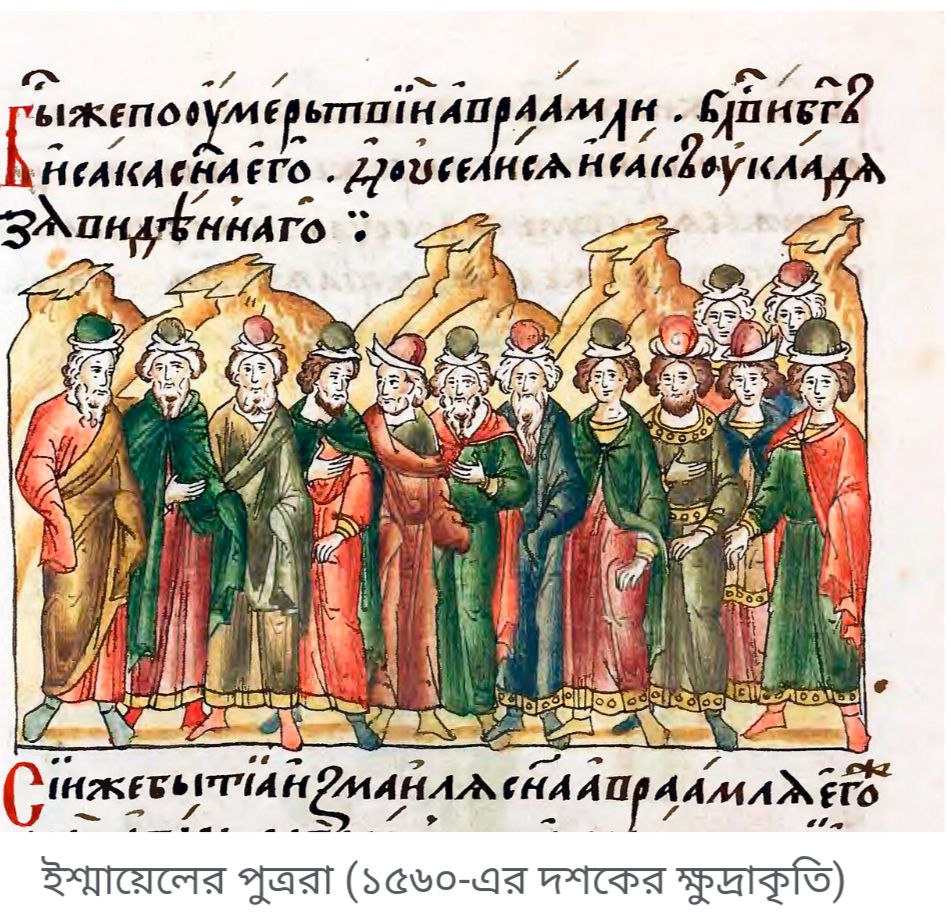 Бы́жепоѹмерьтвїиавраамли . блⷭ҇вибг҃ъ
исакасн҃аего . ꙗ҆оуселисѧисакъоукладѧ
зѧвидѣннаго :·
Сїижебытїаизмаилѧсн҃аавраамлѧего
ইশ্মায়েলের পুত্ররা (১৫৬০-এর দশকের ক্ষুদ্রাকৃতি)